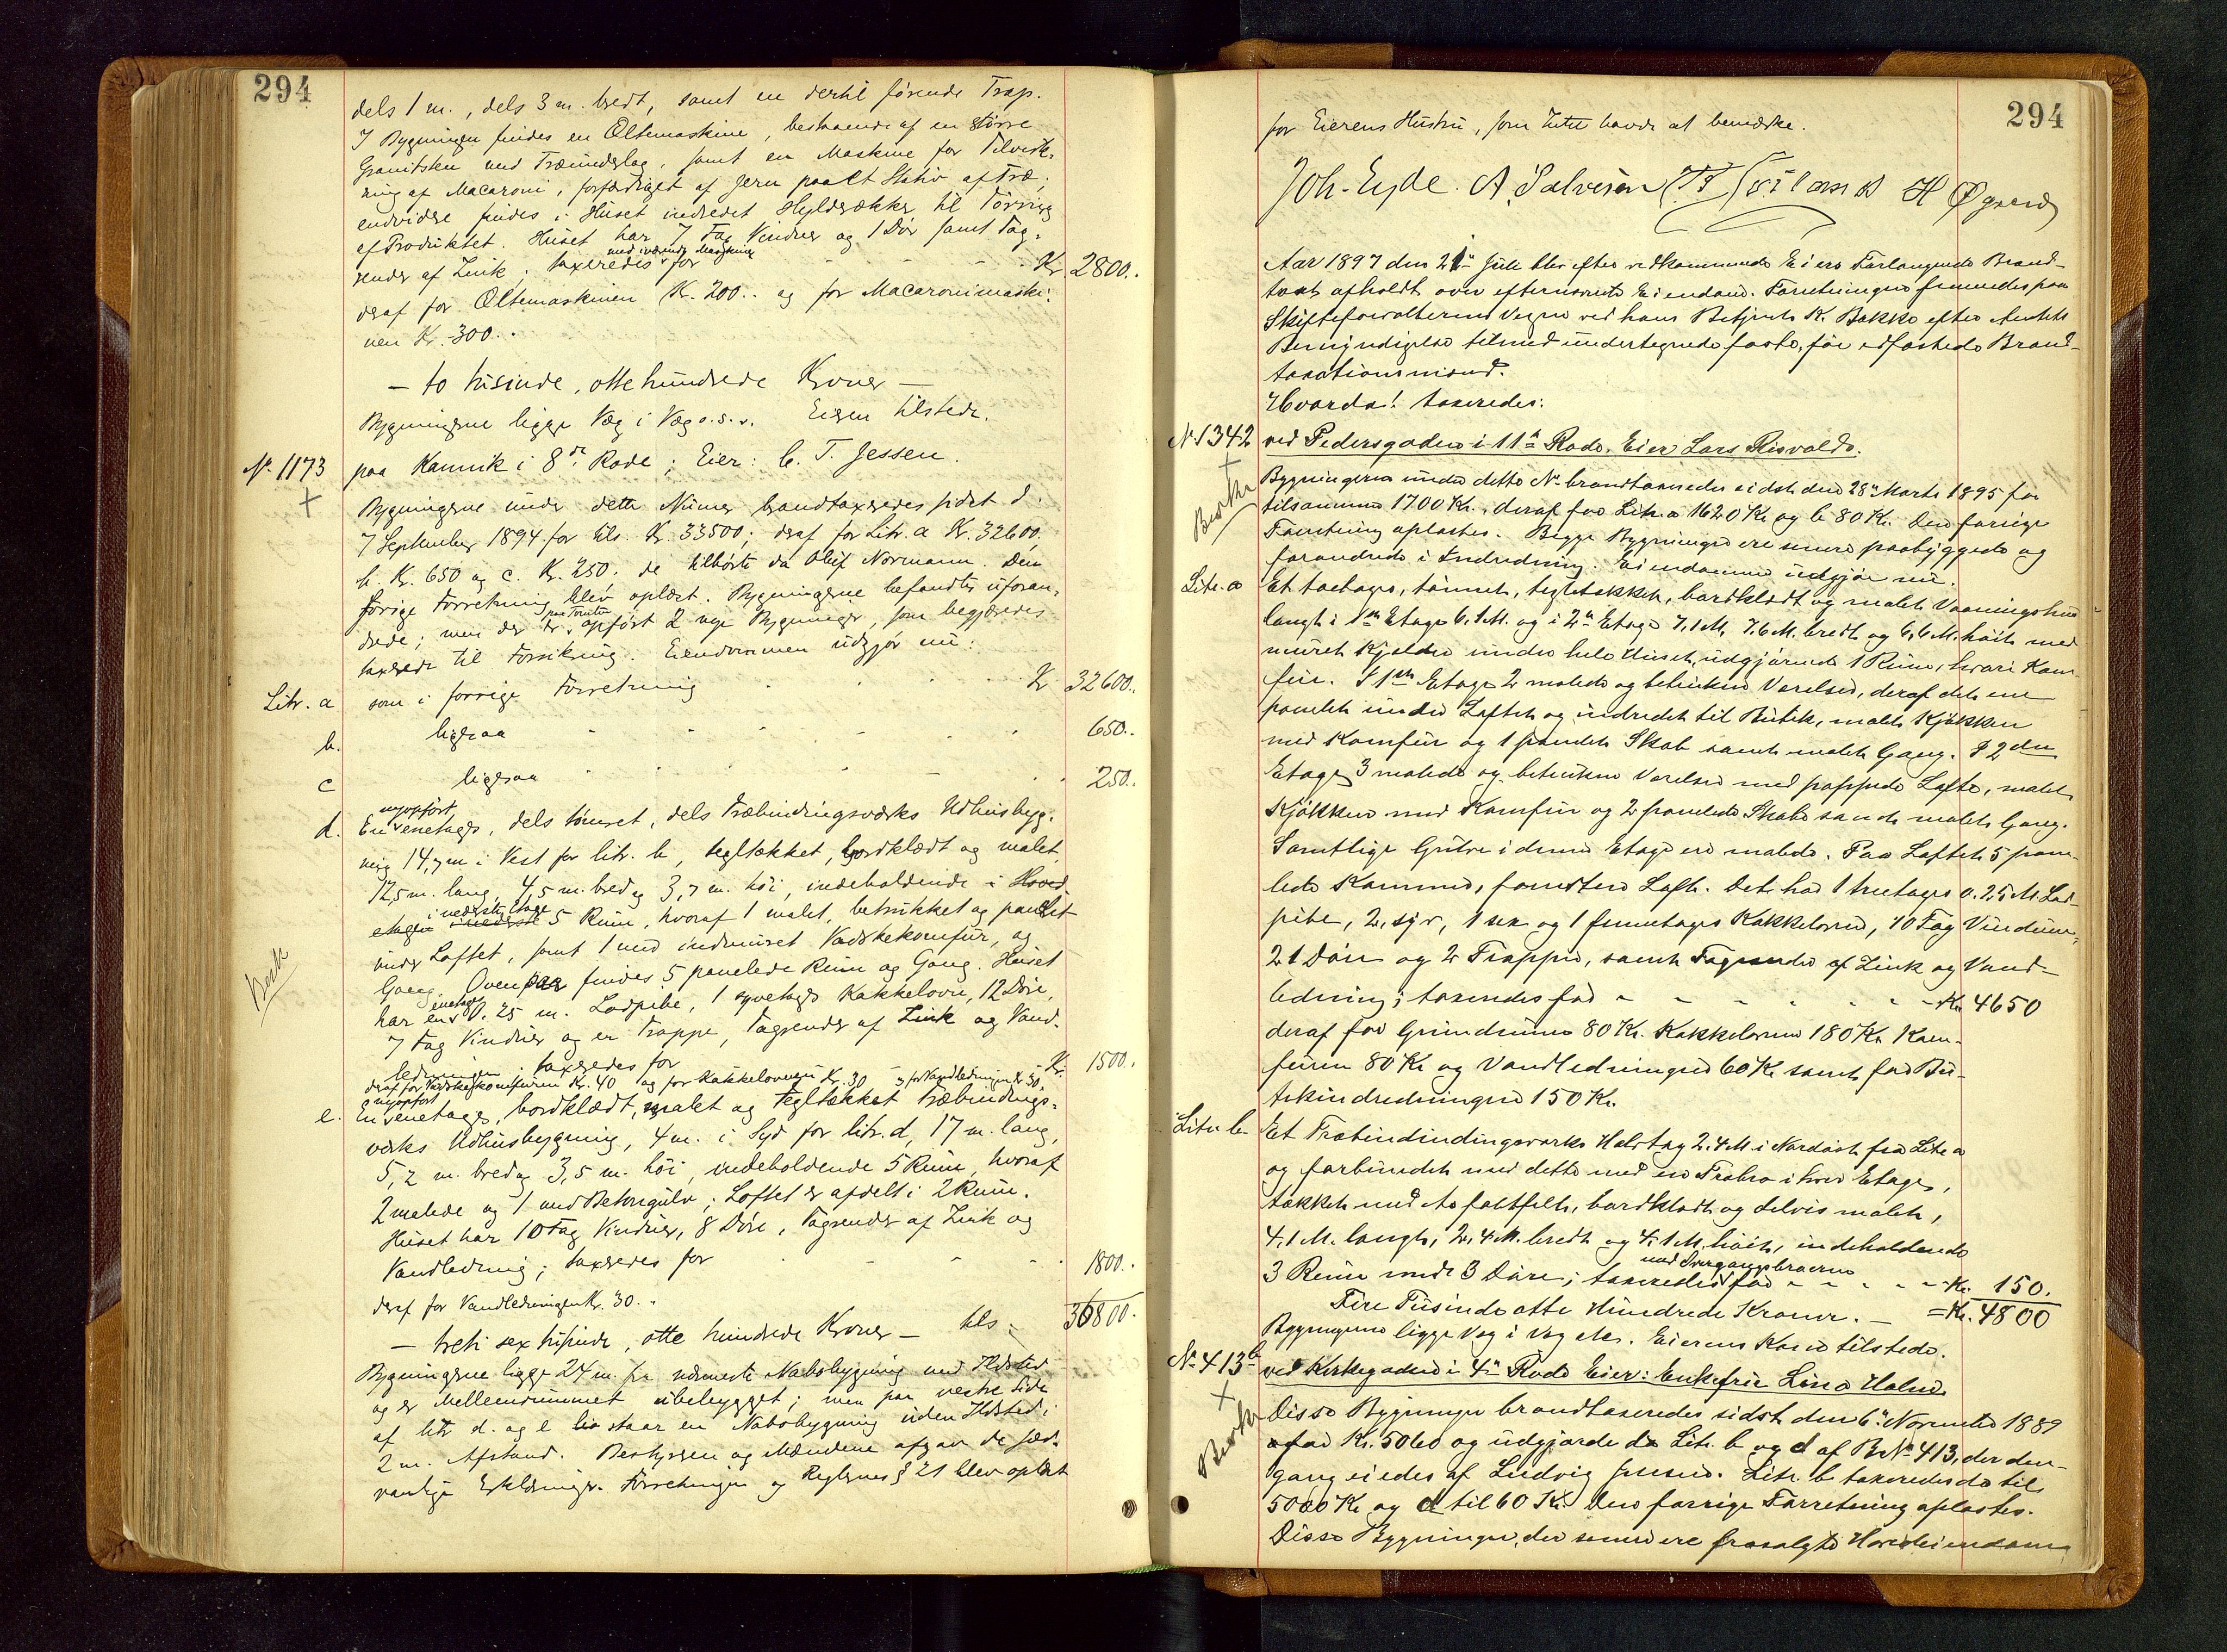 294
dels 1 m., dels 3 m. bredt, samt en dertil førende Trap.
I Bygningen findes en Æltemaskine, bestaaende af en større
Granitsten med Træunderlag, samt en Maskine for Tilvirk-
ning af Macaroni, forfærdiget af Jern paa et Stativ af Træ;
endvidere findes i Huset indredet Hylderækker til Tørring
af Produktet. Huset har 7 Fag Vinduer og 1 Dør samt Tag-
render af Zink; taxeredes med iværende Maskiner for - - - - - Kr. 2800..
deraf for Æltemaskinen Kr. 200.. og for Macaronimaski-
nen Kr. 300..
— to tusinde, otte hundrede Kroner —
Bygningerne ligge Væg i Væg o.s.v. Eieren tilstede.
N. 1173 paa Kannik i 8de Rode; Eier: C. T. Jessen.
Bygningerne under dette Numer brandtaxeredes sidst d.
7 September 1894 for tils. Kr. 33500; deraf for Litr. a Kr. 32600,
b. Kr. 650 og c. Kr. 250. de tilhørte da Oluf Normann. Den
forrige Forretning blev oplæst. Bygningerne befandtes uforan-
drede; men der er paa Tomten opført 2 nye Bygninger, som begjæredes
taxerede til Forsikring. Eiendommen udgjør nu:
Litr. a som i forrige Forretning - - - - Kr 32600..
b. ligesaa - - - - - - 650..
c ligesaa - - - - - - 250..
d. En nyopført eenetages, dels tømret, dels Træbindingsværks Udhusbyg-
ning 14,7 m i Vest for litr. b, tegltækket, bordklædt og malet,
12,5 m. lang, 4,5 m. bred og 3,7 m. høi, indeholdende i Hoved-
etagen i nederste Etage 5 Rum, hvoraf 1 malet, betrukket og panelet
under Loftet, samt 1 med indmuret Vadskekomfur, og
Gang. Ovenpaa findes 5 panelede Rum og Gang. Huset
Besk
har en eenetages 0.25 m. Ladpibe, 1 syvetages Kakkelovn, 12 Døre,
7 Fag Vinduer og en Trappe, Tagrender af Zink og Vand-
ledningen; taxeredes for - Kr. 1500.
deraf for Vadskekomfuren Kr. 40 og for Kakkelovnen Kr. 30 og for Vandledningen Kr 30.
e. En nyopført eenetages, bordklædt, malet og tegltækket Træbindings-
værks Udhusbygning, 4 m. i Syd for litr. d, 17 m. lang,
5,2 m. bred og 3,5 m. høi, indeholdende 5 Rum, hvoraf
2 malede og 1 med Betongulv; Loftet er afdelt i 2 Rum.
Huset har 10 Fag Vinduer, 8 Døre, Tagrender af Zink og
Vandledning; taxeredes for - - - - 1800..
deraf for Vandledningen Kr. 30..
— treti sex tusinde, otte hundrede Kroner — tils. 36800.
Bygningerne ligge 24 m. fra nærmeste Nabobygning med Ildsted
og er Mellemrummet ubebygget; men paa vestre Side
af litr d. og e staar en Nabobygning uden Ildsted i
2 m. Afstand. Bestyreren og Mændene afgav de sæd-
vanlige Erklæringer. Forretningen og Reglernes § 21 blev oplæst
294
for Eierens Hustru, som Intet havde at bemærke.
Joh. Eyde. A. Salvesen H Øgaard
Aar 1897 den 21de Juli blev efter vedkommende Eiers Forlangende Brand-
taxt afholdt over efternævnte Eiendom. Forretningen fremmedes paa
Skifteforvalterens Vegne ved hans Betjent K. Bakke efter Amtets
Bemyndigelse tilmed undertegnede faste, før edfæstede Brand-
taxationsmænd.
Hvorda! taxeredes:
N 1342 ved Pedersgaden i 11te Rode. Eier Lars Risvold.
Beskr
Bygningerne under dette No. brandtaxeredes sidst den 28de Marts 1895 for
tilsammen 1700 Kr., deraf for Litr. a 1620 Kr og b 80 Kr. Den forrige
Forretning oplæstes. Begge Bygninger ere senere paabyggede og
forandrede i Indredning. Eiendommen udgjør nu:
Litr. a Et toetages, tømret, tegltækket, bordklædt og malet Vaaningshus
langt i 1ste Etage 6.1 M. og i 2den Etage 7,1 M, 7.6 M. bredt og 6,6 M. høit med
muret Kjælder under hele Huset, udgjørende 1 Rum, hvori Kom-
fur. I 1ste Etage 2 malede og betrukne Værelser, deraf det ene
panelet under Loftet og indredet til Butik, malet Kjøkken
med Komfur og 1 panelet Skab samt malet Gang. I 2den
Etage 3 malede og betrukne Værelser med pappede Lofte, malet
Kjøkken med Komfur og 2 panelede Skabe samt malet Gang.
Samtlige Gulve i denne Etage ere malede. Paa Loftet 5 pane-
lede Kammer, forresten Loft. Det har 1 treetages 0.25 M. Lad-
pibe, 2 syv, 1 sex og 1 femetages Kakkelovne, 10 Fag Vinduer,
21 Døre og 2 Trapper, samt Tagrender af Zink og Vand-
ledning; taxeredes for - - - - - - Kr. 4650
deraf for Grundmuren 80 Kr. Kakkelovne 180 Kr. Kom-
furen 80 Kr og Vandledningen 60 Kr samt for Bu-
tikindredningen 150 Kr.
Litr b Et Træbindindingsværks Halvtag 2.4 M. i Nordøst fra Litr a
og forbundet med dette med en Træbro i hver Etage,
tækket med Asfaltfilt, bordklædt og delvis malet,
4.1 M. langt, 2.4 M. bredt og 4.1 M. høit, indeholdende
3 Rum med 3 Døre; taxeredes med Overgangsbroerne for - - - - - Kr. 150.
Fire Tusinde otte Hundrede Kroner. — = Kr. 4800
Bygningerne ligge Væg i Væg etc. Eierens Kone tilstede.
No 413b ved Kirkegaden i 4de Rode Eier: Enkefrue Lina Holm.
Beskr
Disse Bygninger brandtaxeredes sidst den 6te November 1889
for Kr. 5060 og udgjorde da Litr. b og d af B.No. 413, der den-
gang eiedes af Ludvig Jensen. Litr. b taxeredes da til
5000 Kr og d til 60 Kr. Den forrige Forretning oplæstes.
Disse Bygninger, der senere ere frasolgte Hovedeiendom